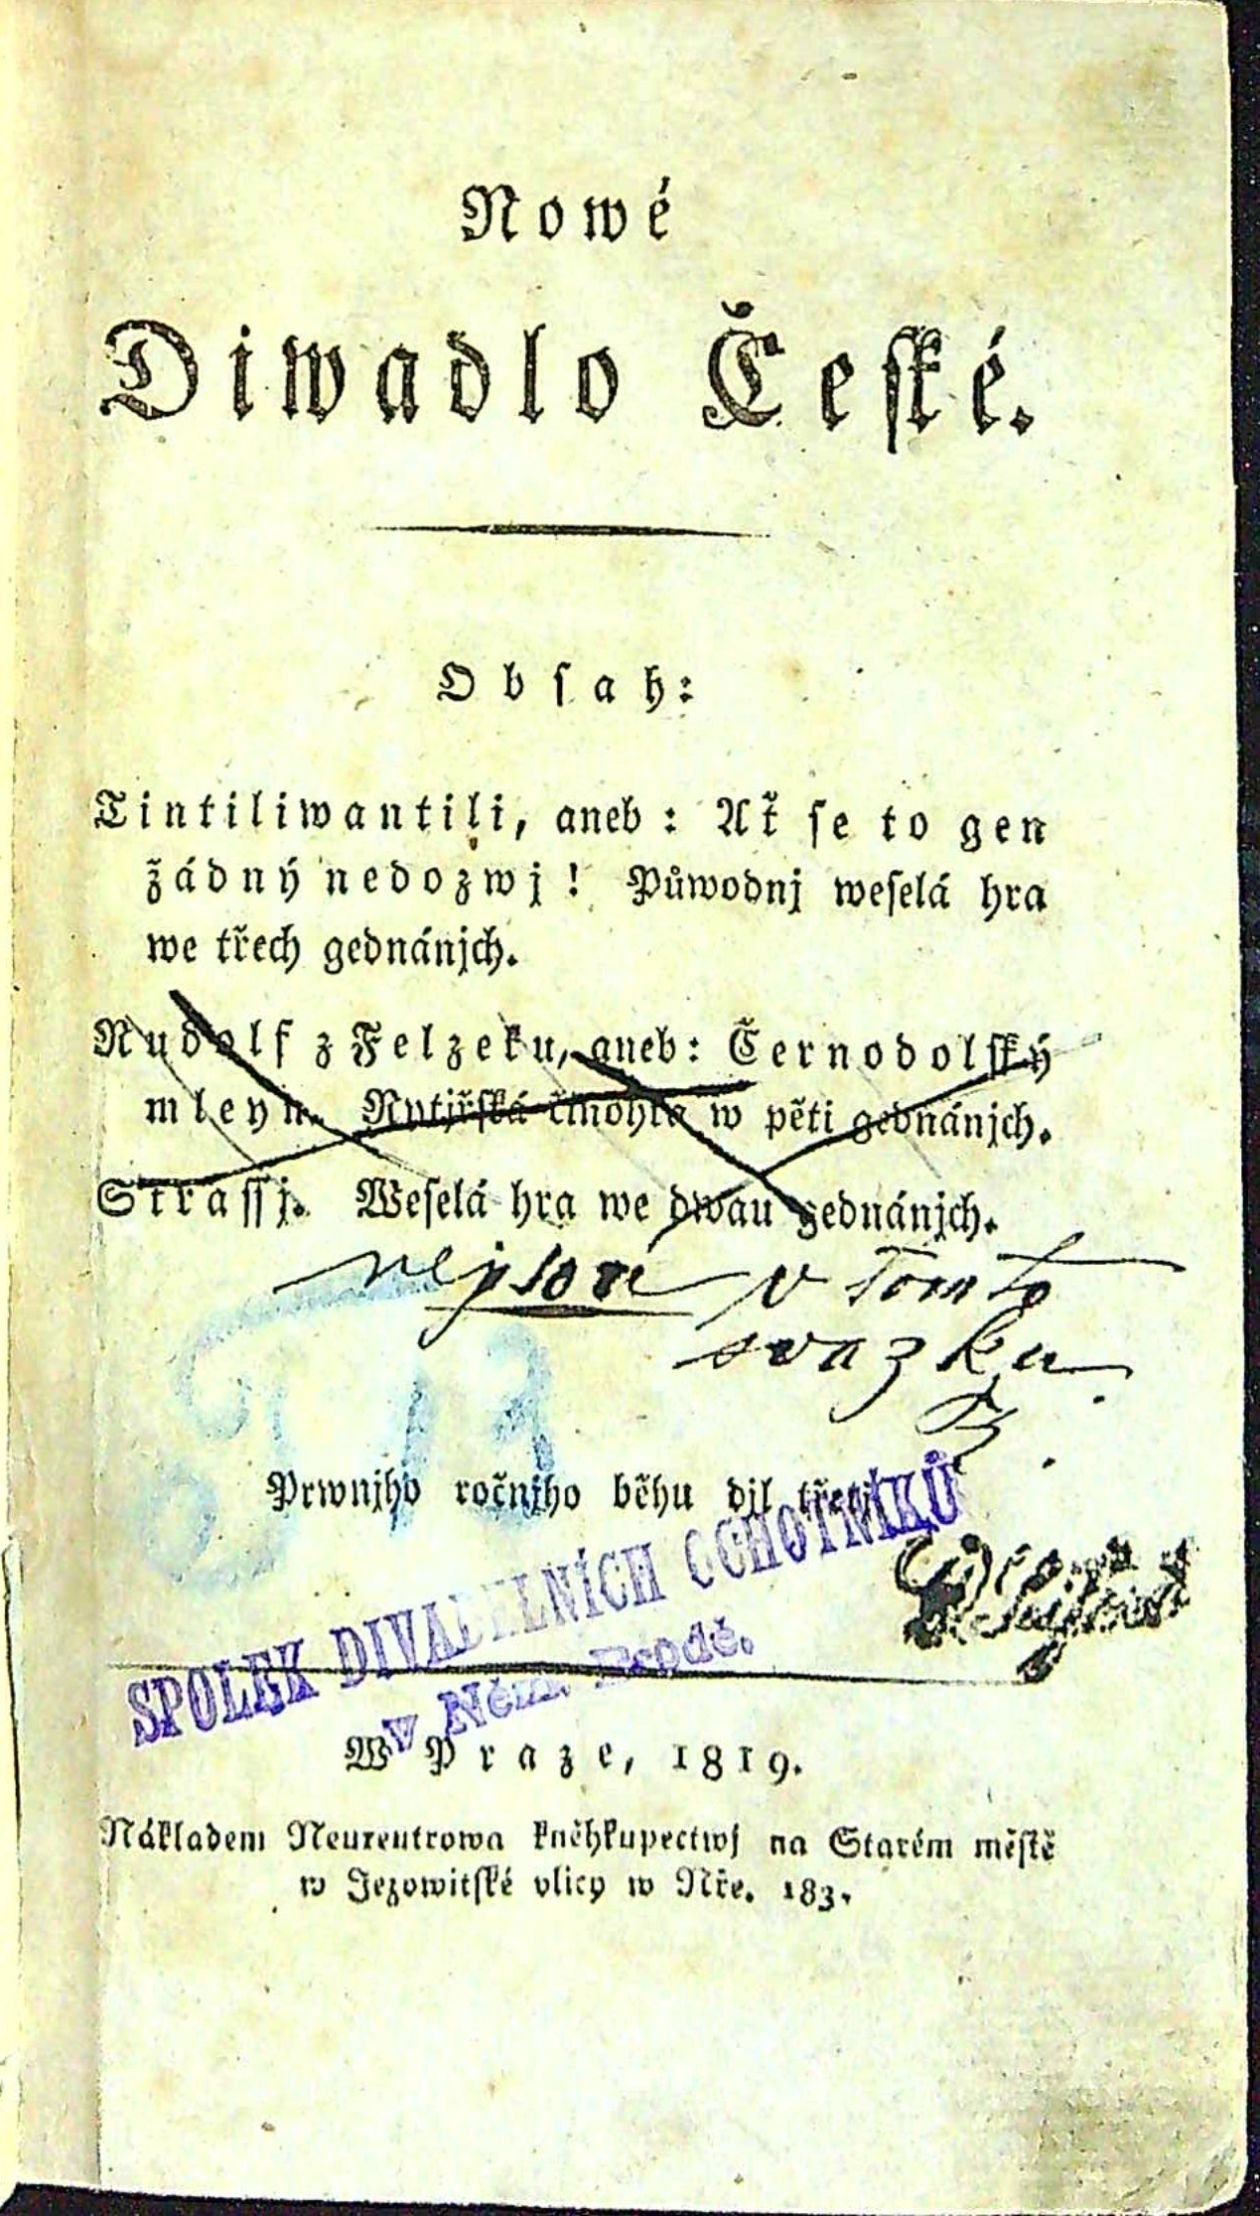 Nowé
Diwadlo České.
Obsah:
Tintiliwantili, aneb: Ať se to gen
žádný nedozwj! Půwodnj weselá hra
we třech gednánjch.
Rudolf z Felzeku, aneb: Černodolský
mleyn. Rytjřská činohra w pěti gednánjch.
Strassj. Weselá hra we dwau gednánjch.
nejsou v tomto
svazku
Prwnjho ročnjho běhu djl třetj
SPOLEK DIVADELNÍCH OCHOTNÍKŮ
v Něm. Brodě.
W Praze, 1819.
Nákladem Neureutrowa kněhkupectwj na Starém městě
w Jezowitské vlicy w Nře. 183.